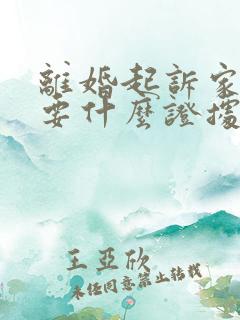 離婚起訴家
要什麼證據
王亞欣
未經同意禁止轉載